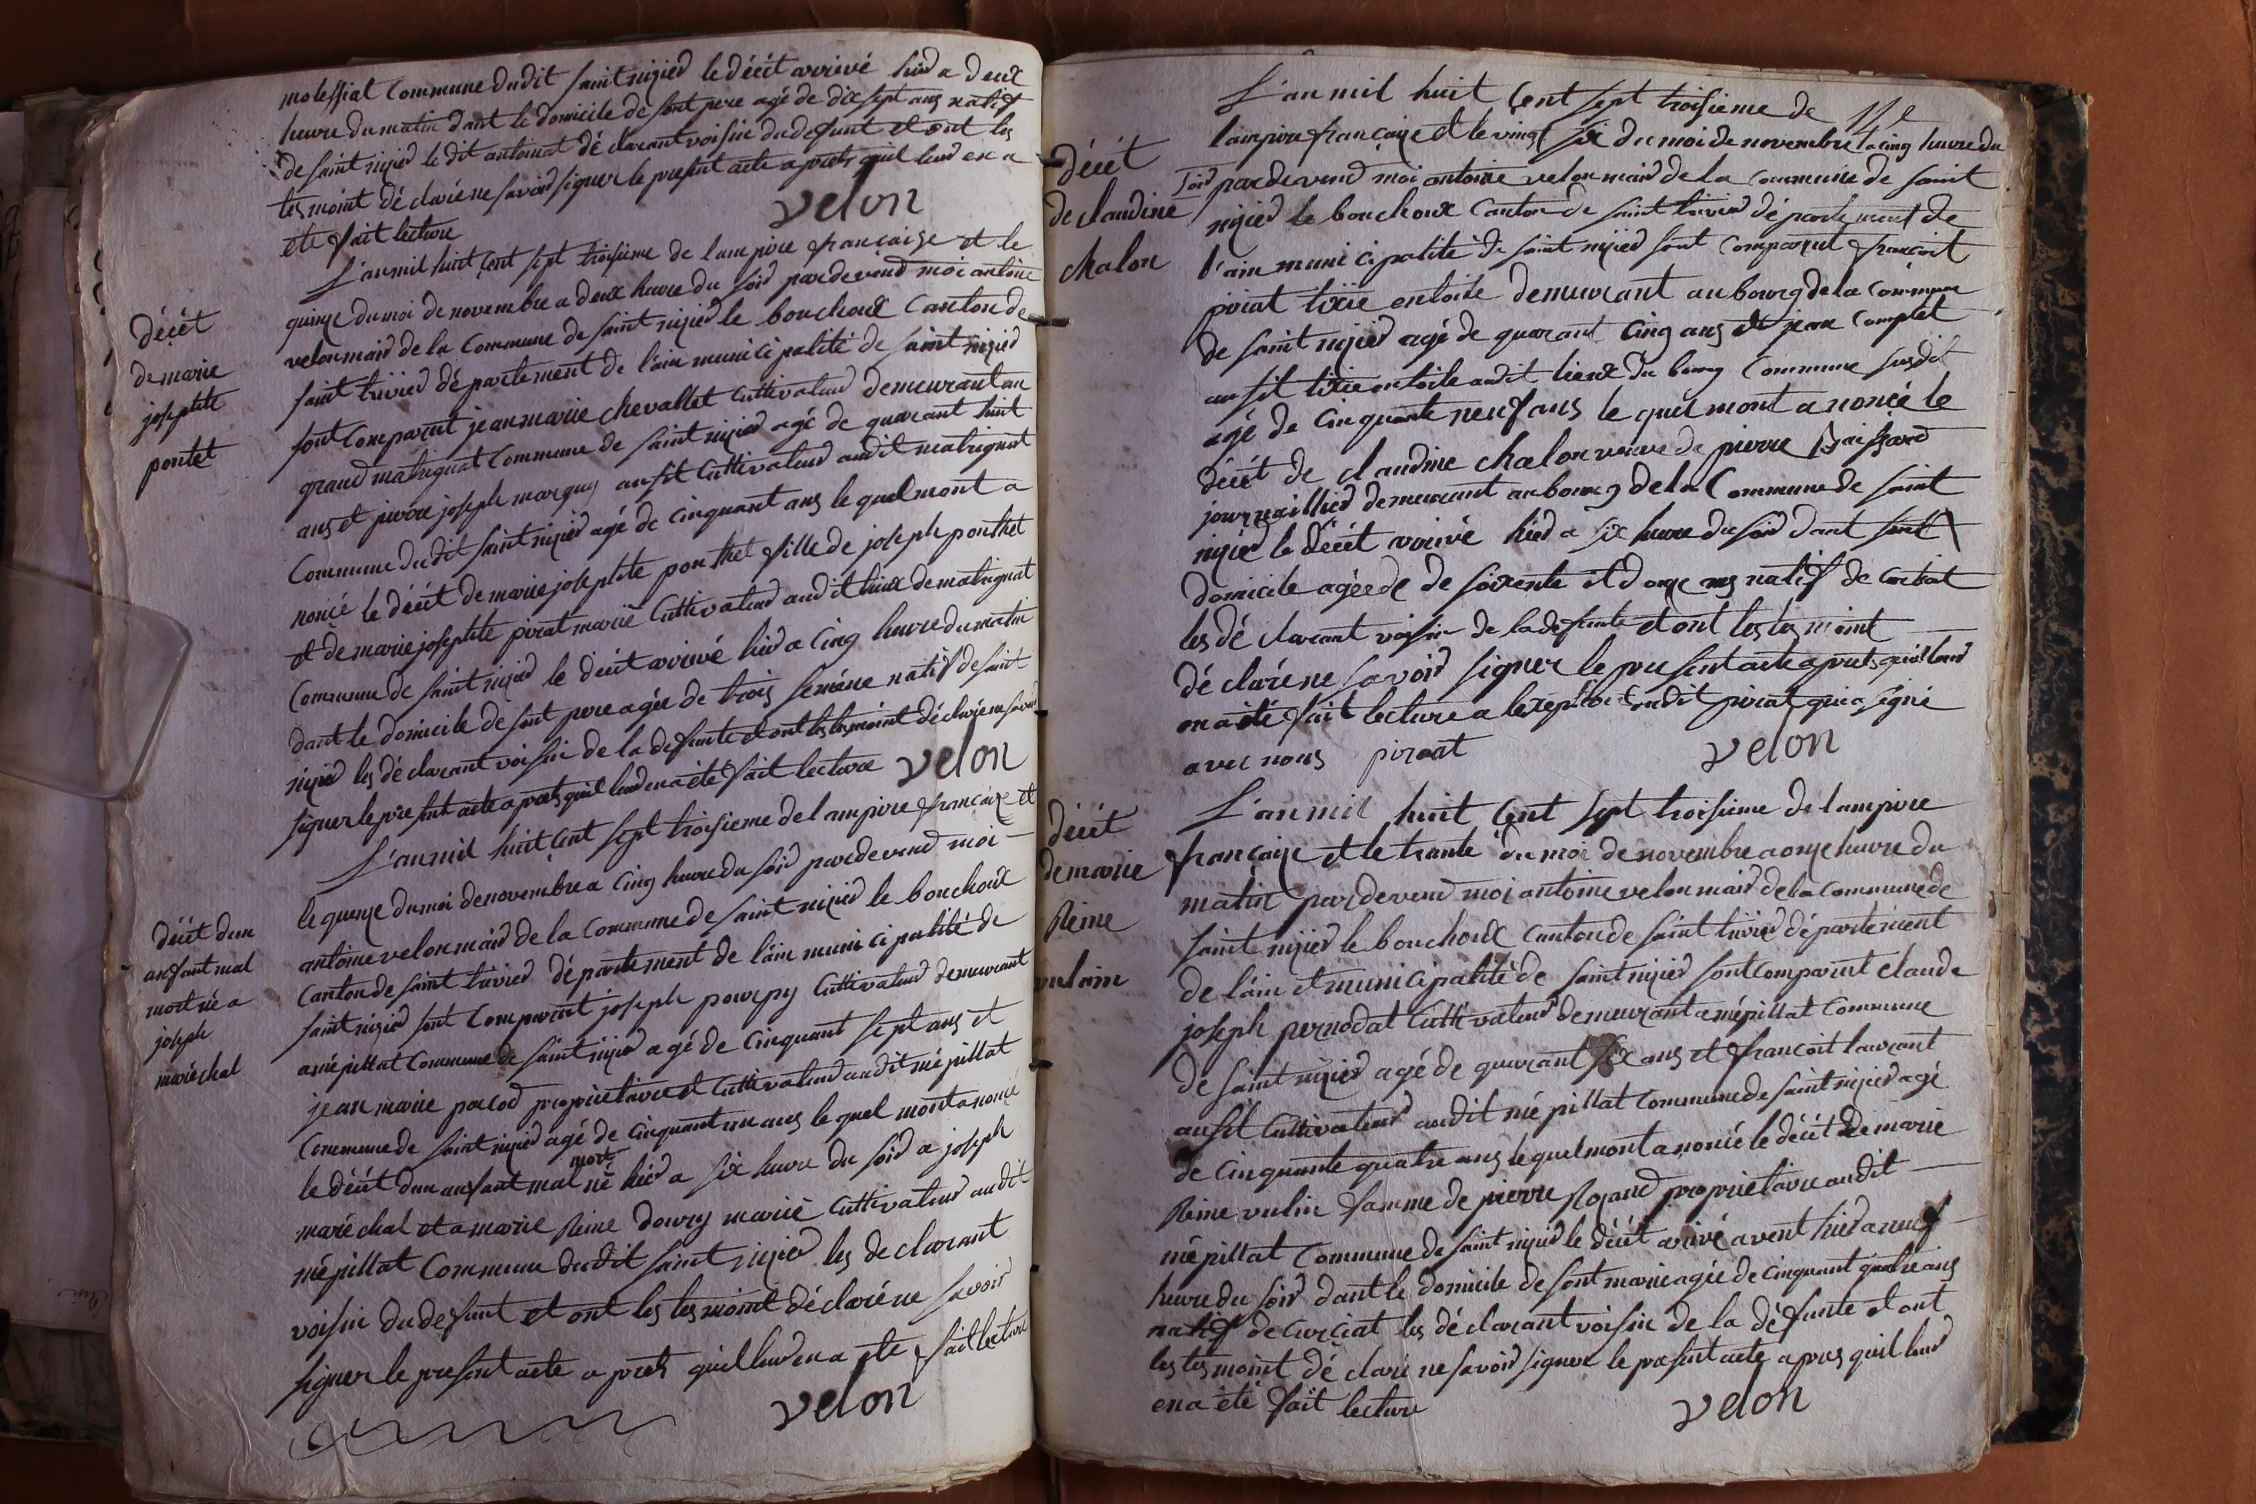 molessiat Commune dudit saint nizier le décét arrivé hier a deux
heure du matin dant le domicile de sont pere agé de dix sept ans natif
de saint nizier le dit antomat déclarant voisin du defunt et ont les
tesmoint déclaré ne savoir signer le present acte aprets quil leur en a
été fait lecture
velon
décét
de marie
josephte
pontet
L'an mil huit cent sept troisieme de lampire française et le
quinze du moi de novembre a deux heure du soir pardevend moi antoine
velon mair de la Commune de saint nizier le bouchoux Canton de
saint trivier département de l'ain municipalité de saint nizier
sont comparut jean marie chevallet Cuttivateur demeurant au
grand matrignat Commune de saint nizier agé de quarant huit
ans et pierre joseph marguy ausit Cuttivateur audit matrignat
Commune dudit saint nizier agé de cinquant ans le quel mont a
noncé le décét de marie josephte ponthet fille de joseph ponthet
et de marie josephte pirat marié Cuttivateur audit lieux de matrignat
Commune de saint nizier le décét arrivé hier a cinq heure du matin
dant le domicile de sont pere agée de trois seméne natif de saint
nizier les déclarant voisin de la defunte et ont les tesmoint déclaré ne savoir
signer le présent acte aprets quil leur en a été fait lecture velon
décét dun
ansfant mal
mort né a
joseph
maréchal
L'an mil huit cent sept troisieme de lampire française et
le quenze du moi de novembre a cinq heure du soir pardevend moi
antoine velon mair de la Commune de saint nizier le bouchoux
Canton de saint trivier département de l'ain municipalité de
saint nizier sont Comparut joseph pourpy Cuttivateur demeurant
a mépillat Commune de saint nizier agé de cinquant sept ans et
jean marie pacod proprietaire et Cuttivateur audit mépillat
Commune de saint nizier agé de cinquant un ans le quel mont anoncé
le décét dun ansfant mal mort né hier a six heure du soir a joseph
maréchal et a marie Reine doury marié Cuttivateur audit
mépillat Commune dudit saint nizier les declarant
voisin du defunt et ont les tesmoint déclaré ne savoir
signer le present acte aprets quil leur en a été fait lecture
velon
décét
de claudine
chalon
L'an mil huit cent sept troisieme de
lampire française et le vingt six du moi de novembre a cinq heure du
soir pardevend moi antoine velon mair de la commune de saint
nizier le bouchoux Canton de saint trivier département de
l'ain municipalité de saint nizier sont Comparut françoit
pirat tixié entoile demeurant au bourg de la Commune
de saint nizier agé de quarant cinq ans et jean Complet
ausit tixié entoile audit lieux du bourg Commune susdit
agé de cinquante neuf ans le quel mont anoncé le
décét de claudine chalon veuve de pierre Baissard
journaillier demeurant au bourg de la Commune de saint
nizier le décét arrivé hier a six heure du soir dant sont
domicile agée de de soixente et d onze ans natif de
les déclarant voisin de la defunte et ont les tesmoint
déclaré ne savoir signer le present acte aprets quil leur
en a été fait lecture a lexeption dudit pirat qui a signé
avec nous pirat velon
décét
de marie
Reine
vulain
L'an mil huit cent sept troisieme de lampire
française et le trante du moi de novembre a onze heure du
matin pardevend moi antoine velon mair de la Commune de
saint nizier le bouchoux Canton de saint trivier département
de l'ain et municipalité de saint nizier sont comparut claude
joseph pernodat Cuttivateur demeurant a mépillat Commune
de saint nizier agé de quarant six ans et françoit laurant
ausit Cuttivateur audit mépillat Commune de saint nizier agé
de cinquante quatre ans le quel mont anoncé le décét de marie
Reine vulin famme de pierre Rozand proprietaire audit
mépillat Commune de saint nizier le décét arivé avent hier a neuf
heure du soir dant le domicile de sont marie agée de cinquant quatre ans
natif de curciat les déclarant voisin de la défunte et ont
les tesmoint déclaré ne savoir signer le present acte apres quil leur
en a été fait lecture velon